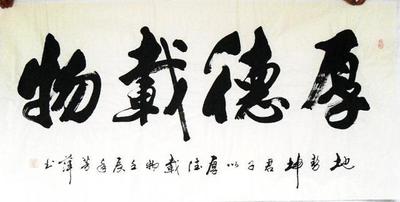 厚德載物
地势坤君子以厚德載物壬辰年